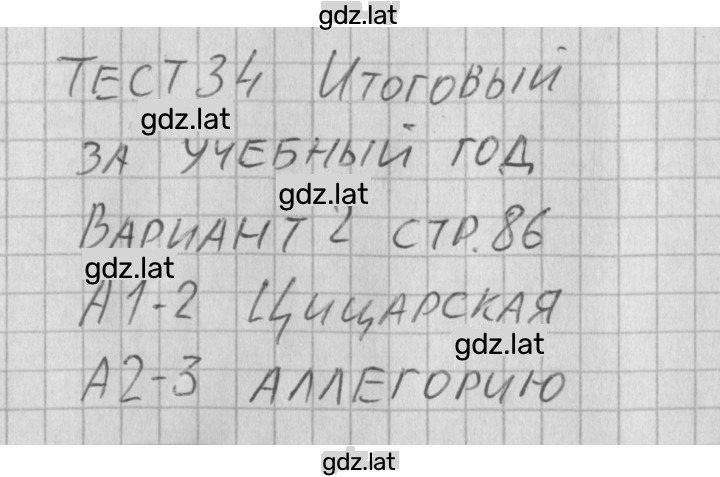 gdz.lat
ТЕСТ 34 ИТОГОВЫЙ
gdz.lat
ЗА УЧЕБНЫЙ ГОД
gdz.lat
ВАРИАНТ 2 СТР. 86
gdz.lat
А1-2 ЦИЦАРСКАЯ
gdz.lat
А2-3 АЛЛЕГОРИЮ
gdz.lat